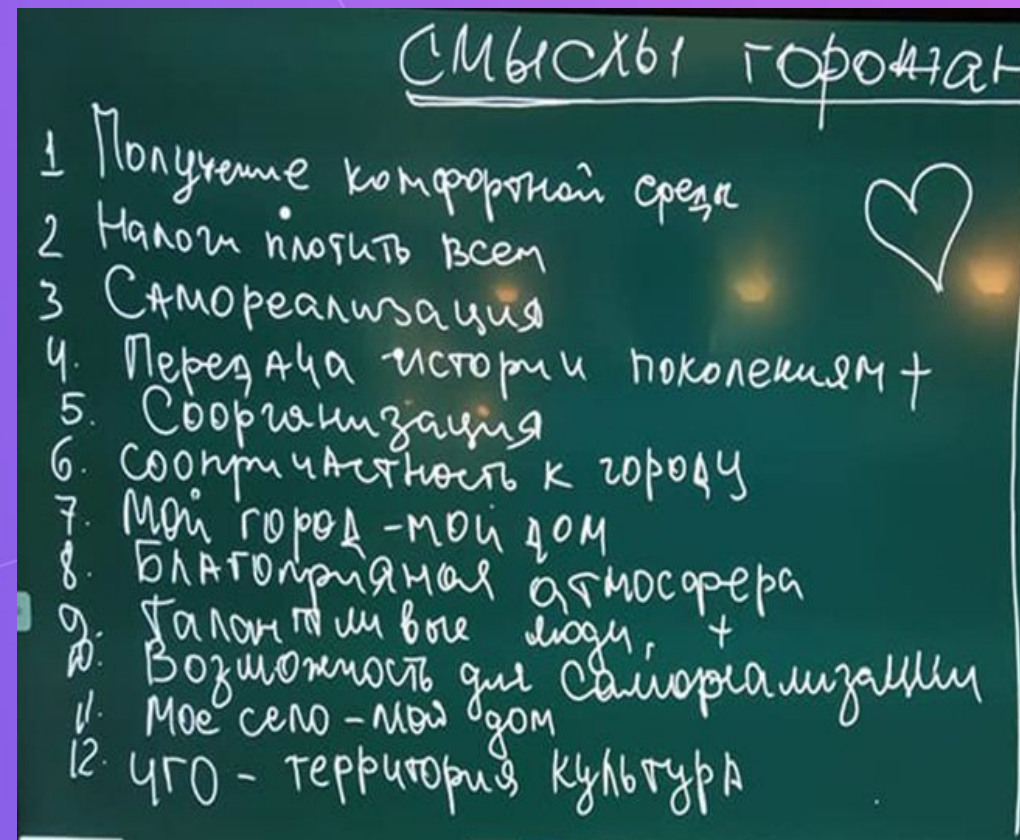 СМЫСЛЫ горожан
1 Получение комфортной среды
2 Налоги плотить всем
3 Самореализация
4. Передача истории поколениям +
5. Соорганизация
6. Соопричастность к городу
7. Мой город - мой дом
8. Благоприяная атмосфера
9. Талантливые люди, +
10. Возможность для самореализации
11. Мое село - мой дом
12. ЧГО - территория культура